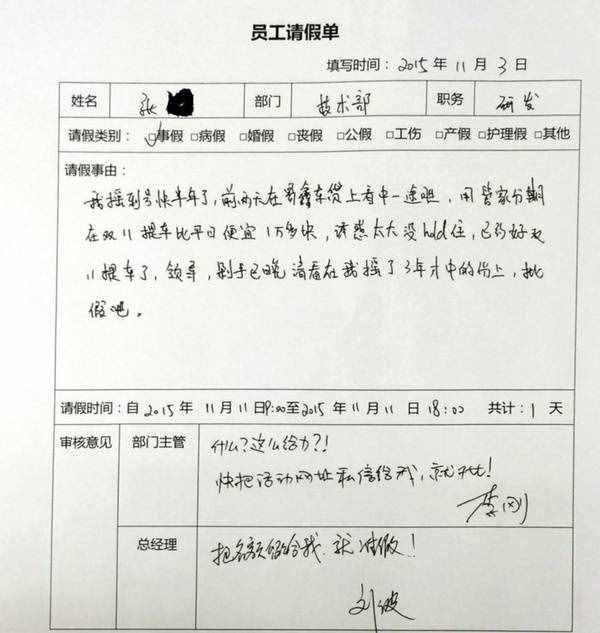 员工请假单
填写时间：2015 年 11 月 3 日
姓名 张 部门 技术部 职务 研发
请假类别：□事假 □病假 □婚假 □丧假 □公假 □工伤 □产假 □护理假 □其他
请假事由：
我摇到号快半年了，前两天在易鑫车贷上看中一途观，用管家分期
在双11提车比平日便宜1万多块，诱惑太大没hold住，已约好双
11提车了，领导，剁手已晚请看在我摇了3年才中的份上，批
假吧。
请假时间：自 2015 年 11 月 11 日9:00至2015 年11月11 日 18:00 共计：1 天
审核意见 部门主管 什么？这么给力？！
快把活动网址私信给我，就批！
李刚
总经理 把名额留给我，就准假！
刘波